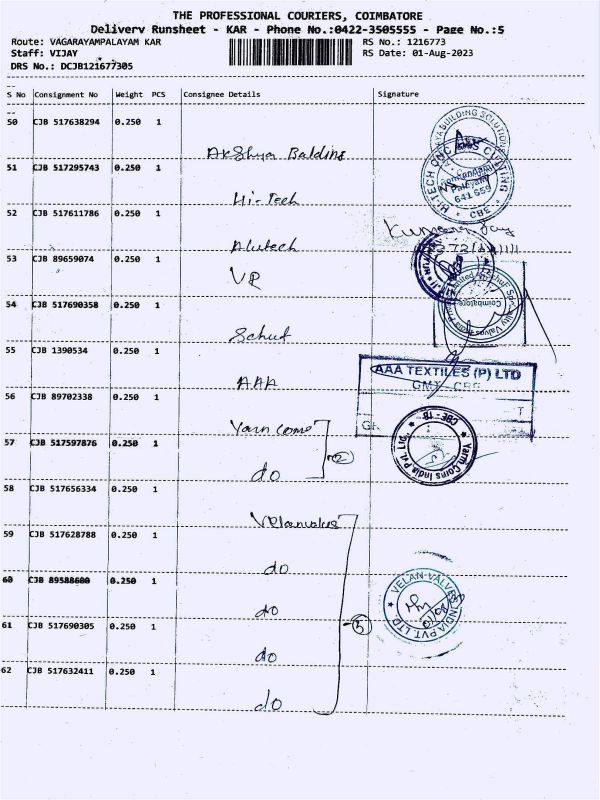 THE PROFESSIONAL COURIERS, COIMBATORE
Delivery Runsheet - KAR - Phone No.:0422-3505555 - Page No.:5
Route: VAGARAYAMPALAYAM KAR
RS No.: 1216773
Staff: VIJAY
RS Date: 01-Aug-2023
DRS No.: DCJB121677305
S No Consignment No Weight PCS Consignee Details Signature
50 CJB 517638294 0.250 1
Akshya Balding
51 CJB 517295743 0.250 1
Hi-Tech
52 CJB 517611786 0.250 1
Alutech
53 CJB 89659074 0.250 1
VR
54 CJB 517690358 0.250 1
Schuf
55 CJB 1390534 0.250 1
AAA
AAA TEXTILES (P) LTD
GMT - CBE
56 CJB 89702338 0.250 1
Yarn Coins
57 CJB 517597876 0.250 1
do
2
Yarn Coins India Pvt. Ltd.
CBE - 18
58 CJB 517656334 0.250 1
Velanvalves
59 CJB 517628788 0.250 1
do
60 CJB 89588600 0.250 1
do
61 CJB 517690305 0.250 1
do
62 CJB 517632411 0.250 1
do
5
VELAN-VALVES INDIA PVT. LTD
HI-TECH CNC GAS CUTTING
641 659
CBE.
Coimbatore